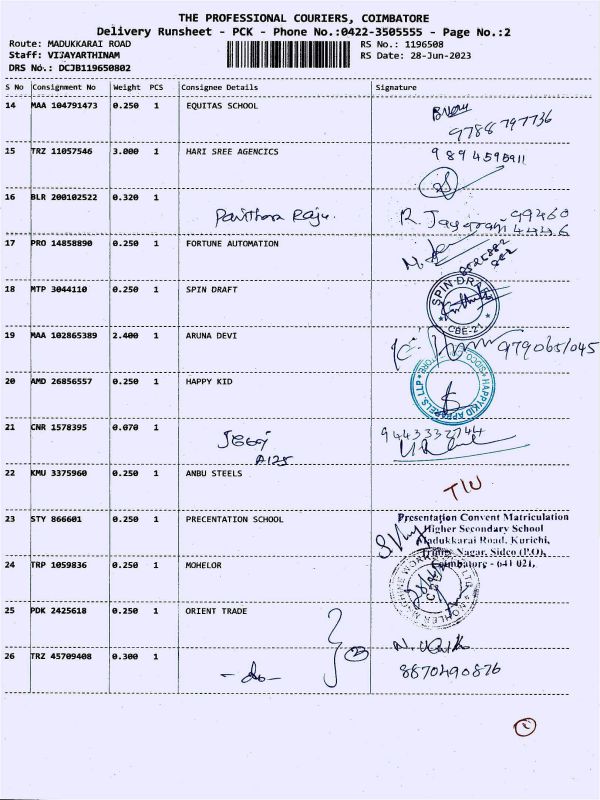 THE PROFESSIONAL COURIERS, COIMBATORE
Delivery Runsheet - PCK - Phone No.:0422-3505555 - Page No.:2
Route: MADUKKARAI ROAD RS No.: 1196508
Staff: VIJAYARTHINAM RS Date: 28-Jun-2023
DRS No.: DCJB119650802
S No Consignment No Weight PCS Consignee Details Signature
14 MAA 104791473 0.250 1 EQUITAS SCHOOL
9788 797736
15 TRZ 11057546 3.000 1 HARI SREE AGENCICS
16 BLR 200102522 0.320 1
Pavithra Raju. R. Jayaram 99460
4446
17 PRO 14858890 0.250 1 FORTUNE AUTOMATION
18 MTP 3044110 0.250 1 SPIN DRAFT
SPIN DRAFT
CBE-21
19 MAA 102865389 2.400 1 ARUNA DEVI
9790651045
20 AMD 26856557 0.250 1 HAPPY KID
HAPPYKID APPARELS LLP
SIDCO
21 CNR 1578395 0.070 1
A125
9443332744
22 KMU 3375960 0.250 1 ANBU STEELS
23 STY 866601 0.250 1 PRECENTATION SCHOOL
Presentation Convent Matriculation
Higher Secondary School
Madukkarai Road, Kurichi,
Nagar, Sidco (P.O),
Coimbatore - 641 021,
24 TRP 1059836 0.250 1 MOHELOR
25 PDK 2425618 0.250 1 ORIENT TRADE
26 TRZ 45709408 0.300 1
- do -
8870490876